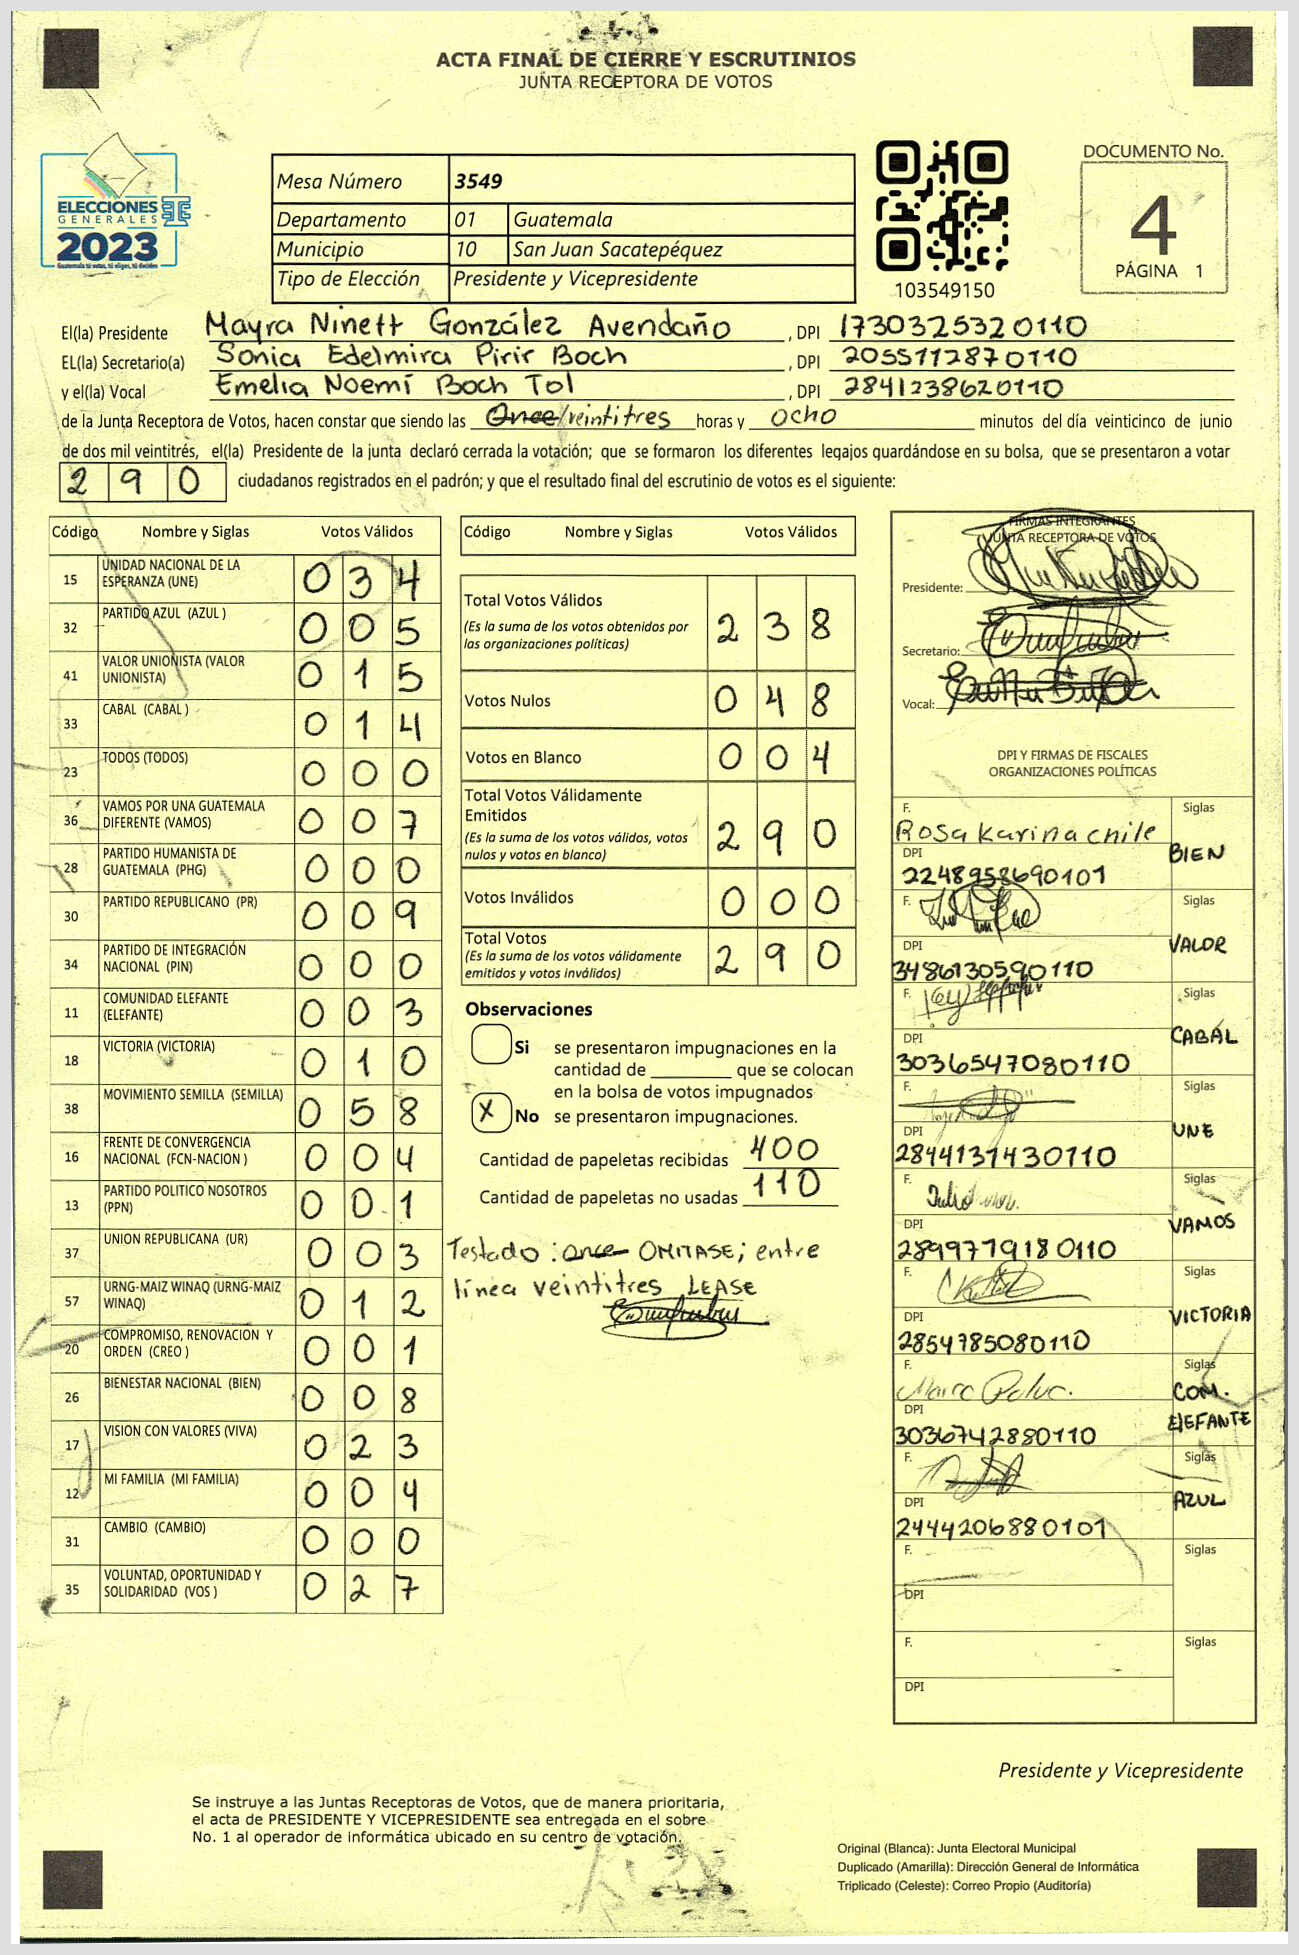 ACTA FINAL DE CIERRE Y ESCRUTINIOS
JUNTA RECEPTORA DE VOTOS
ELECCIONES
GENERALES
2023
Guatemala tú votas, tú eliges, tú decides
Mesa Número 3549
Departamento 01 Guatemala
Municipio 10 San Juan Sacatepéquez
Tipo de Elección Presidente y Vicepresidente
103549150
DOCUMENTO No.
4
PÁGINA 1
El(la) Presidente Mayra Ninett González Avendaño, DPI 1730325320110
EL(la) Secretario(a) Sonia Edelmira Pirir Boch, DPI 2055112870110
y el(la) Vocal Emelia Noemí Boch Tol, DPI 2841238620110
de la Junta Receptora de Votos, hacen constar que siendo las Once/veintitres horas y ocho minutos del día veinticinco de junio
de dos mil veintitrés, el(la) Presidente de la junta declaró cerrada la votación; que se formaron los diferentes legajos guardándose en su bolsa, que se presentaron a votar
290 ciudadanos registrados en el padrón; y que el resultado final del escrutinio de votos es el siguiente:
Código Nombre y Siglas Votos Válidos
15 UNIDAD NACIONAL DE LA ESPERANZA (UNE) 034
32 PARTIDO AZUL (AZUL ) 005
41 VALOR UNIONISTA (VALOR UNIONISTA) 015
33 CABAL (CABAL ) 014
23 TODOS (TODOS) 000
36 VAMOS POR UNA GUATEMALA DIFERENTE (VAMOS) 007
28 PARTIDO HUMANISTA DE GUATEMALA (PHG) 000
30 PARTIDO REPUBLICANO (PR) 009
34 PARTIDO DE INTEGRACIÓN NACIONAL (PIN) 000
11 COMUNIDAD ELEFANTE (ELEFANTE) 003
18 VICTORIA (VICTORIA) 010
38 MOVIMIENTO SEMILLA (SEMILLA) 058
16 FRENTE DE CONVERGENCIA NACIONAL (FCN-NACION ) 004
13 PARTIDO POLITICO NOSOTROS (PPN) 001
37 UNION REPUBLICANA (UR) 003
57 URNG-MAIZ WINAQ (URNG-MAIZ WINAQ) 012
20 COMPROMISO, RENOVACION Y ORDEN (CREO ) 001
26 BIENESTAR NACIONAL (BIEN) 008
17 VISION CON VALORES (VIVA) 023
12 MI FAMILIA (MI FAMILIA) 004
31 CAMBIO (CAMBIO) 000
35 VOLUNTAD, OPORTUNIDAD Y SOLIDARIDAD (VOS ) 027
Código Nombre y Siglas Votos Válidos
Total Votos Válidos 238
(Es la suma de los votos obtenidos por
las organizaciones politicas)
Votos Nulos 048
Votos en Blanco 004
Total Votos Válidamente
Emitidos 290
(Es la suma de los votos válidos, votos
nulos y votos en blanco)
Votos Inválidos 000
Total Votos 290
(Es la suma de los votos válidamente
emitidos y votos inválidos)
Observaciones
Si se presentaron impugnaciones en la
cantidad de ________ que se colocan
en la bolsa de votos impugnados
X No se presentaron impugnaciones.
Cantidad de papeletas recibidas 400
Cantidad de papeletas no usadas 110
Testado: once OMITASE; entre
línea veintitres LEASE
FIRMAS INTEGRANTES
JUNTA RECEPTORA DE VOTOS
Presidente:
Secretario:
Vocal:
DPI Y FIRMAS DE FISCALES
ORGANIZACIONES POLÍTICAS
F. Rosa Karina chile Siglas
DPI 2248958690101 BIEN
F. Siglas
DPI 3486130590110 VALOR
F. Siglas
DPI 3036547080110 CABAL
F. Siglas
DPI 2844131430110 UNE
F. Siglas
DPI 2899779180110 VAMOS
F. Siglas
DPI 2854785080110 VICTORIA
F. Siglas
DPI 3036742880110 COM. ElEFANTE
F. Siglas
DPI 2444206880101 AZUL
F. Siglas
DPI
F. Siglas
DPI
Presidente y Vicepresidente
Se instruye a las Juntas Receptoras de Votos, que de manera prioritaria,
el acta de PRESIDENTE Y VICEPRESIDENTE sea entregada en el sobre
No. 1 al operador de informática ubicado en su centro de votación.
Original (Blanca): Junta Electoral Municipal
Duplicado (Amarilla): Dirección General de Informática
Triplicado (Celeste): Correo Propio (Auditoría)